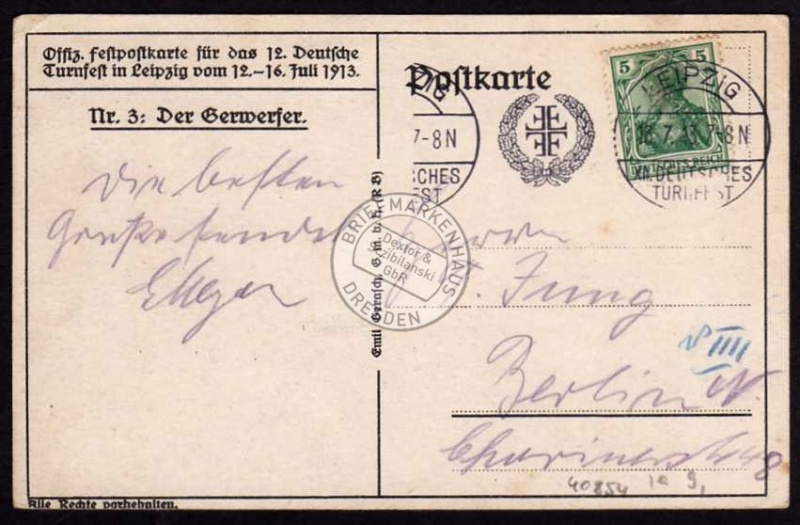 Offiz. Festpostkarte für das 12. Deutsche
Turnfest in Leipzig vom 12.–16. Juli 1913.
Nr. 3: Der Gerwerfer.
Die besten
Grüße sendet
Alle Rechte vorbehalten.
Emil Gerasch, G. m. b. H. (R B)
Postkarte
7-8N
SCHES
EST
5 5
DEUTSCHES REICH
LEIPZIG
7-8N
XII. DEUTSCHES
TURNFEST
BRIEFMARKENHAUS
Dextor &
Zibilanski
GbR
DRESDEN
Herrn
Jung
Berlin N.
IIII
48
40854 1a 9,